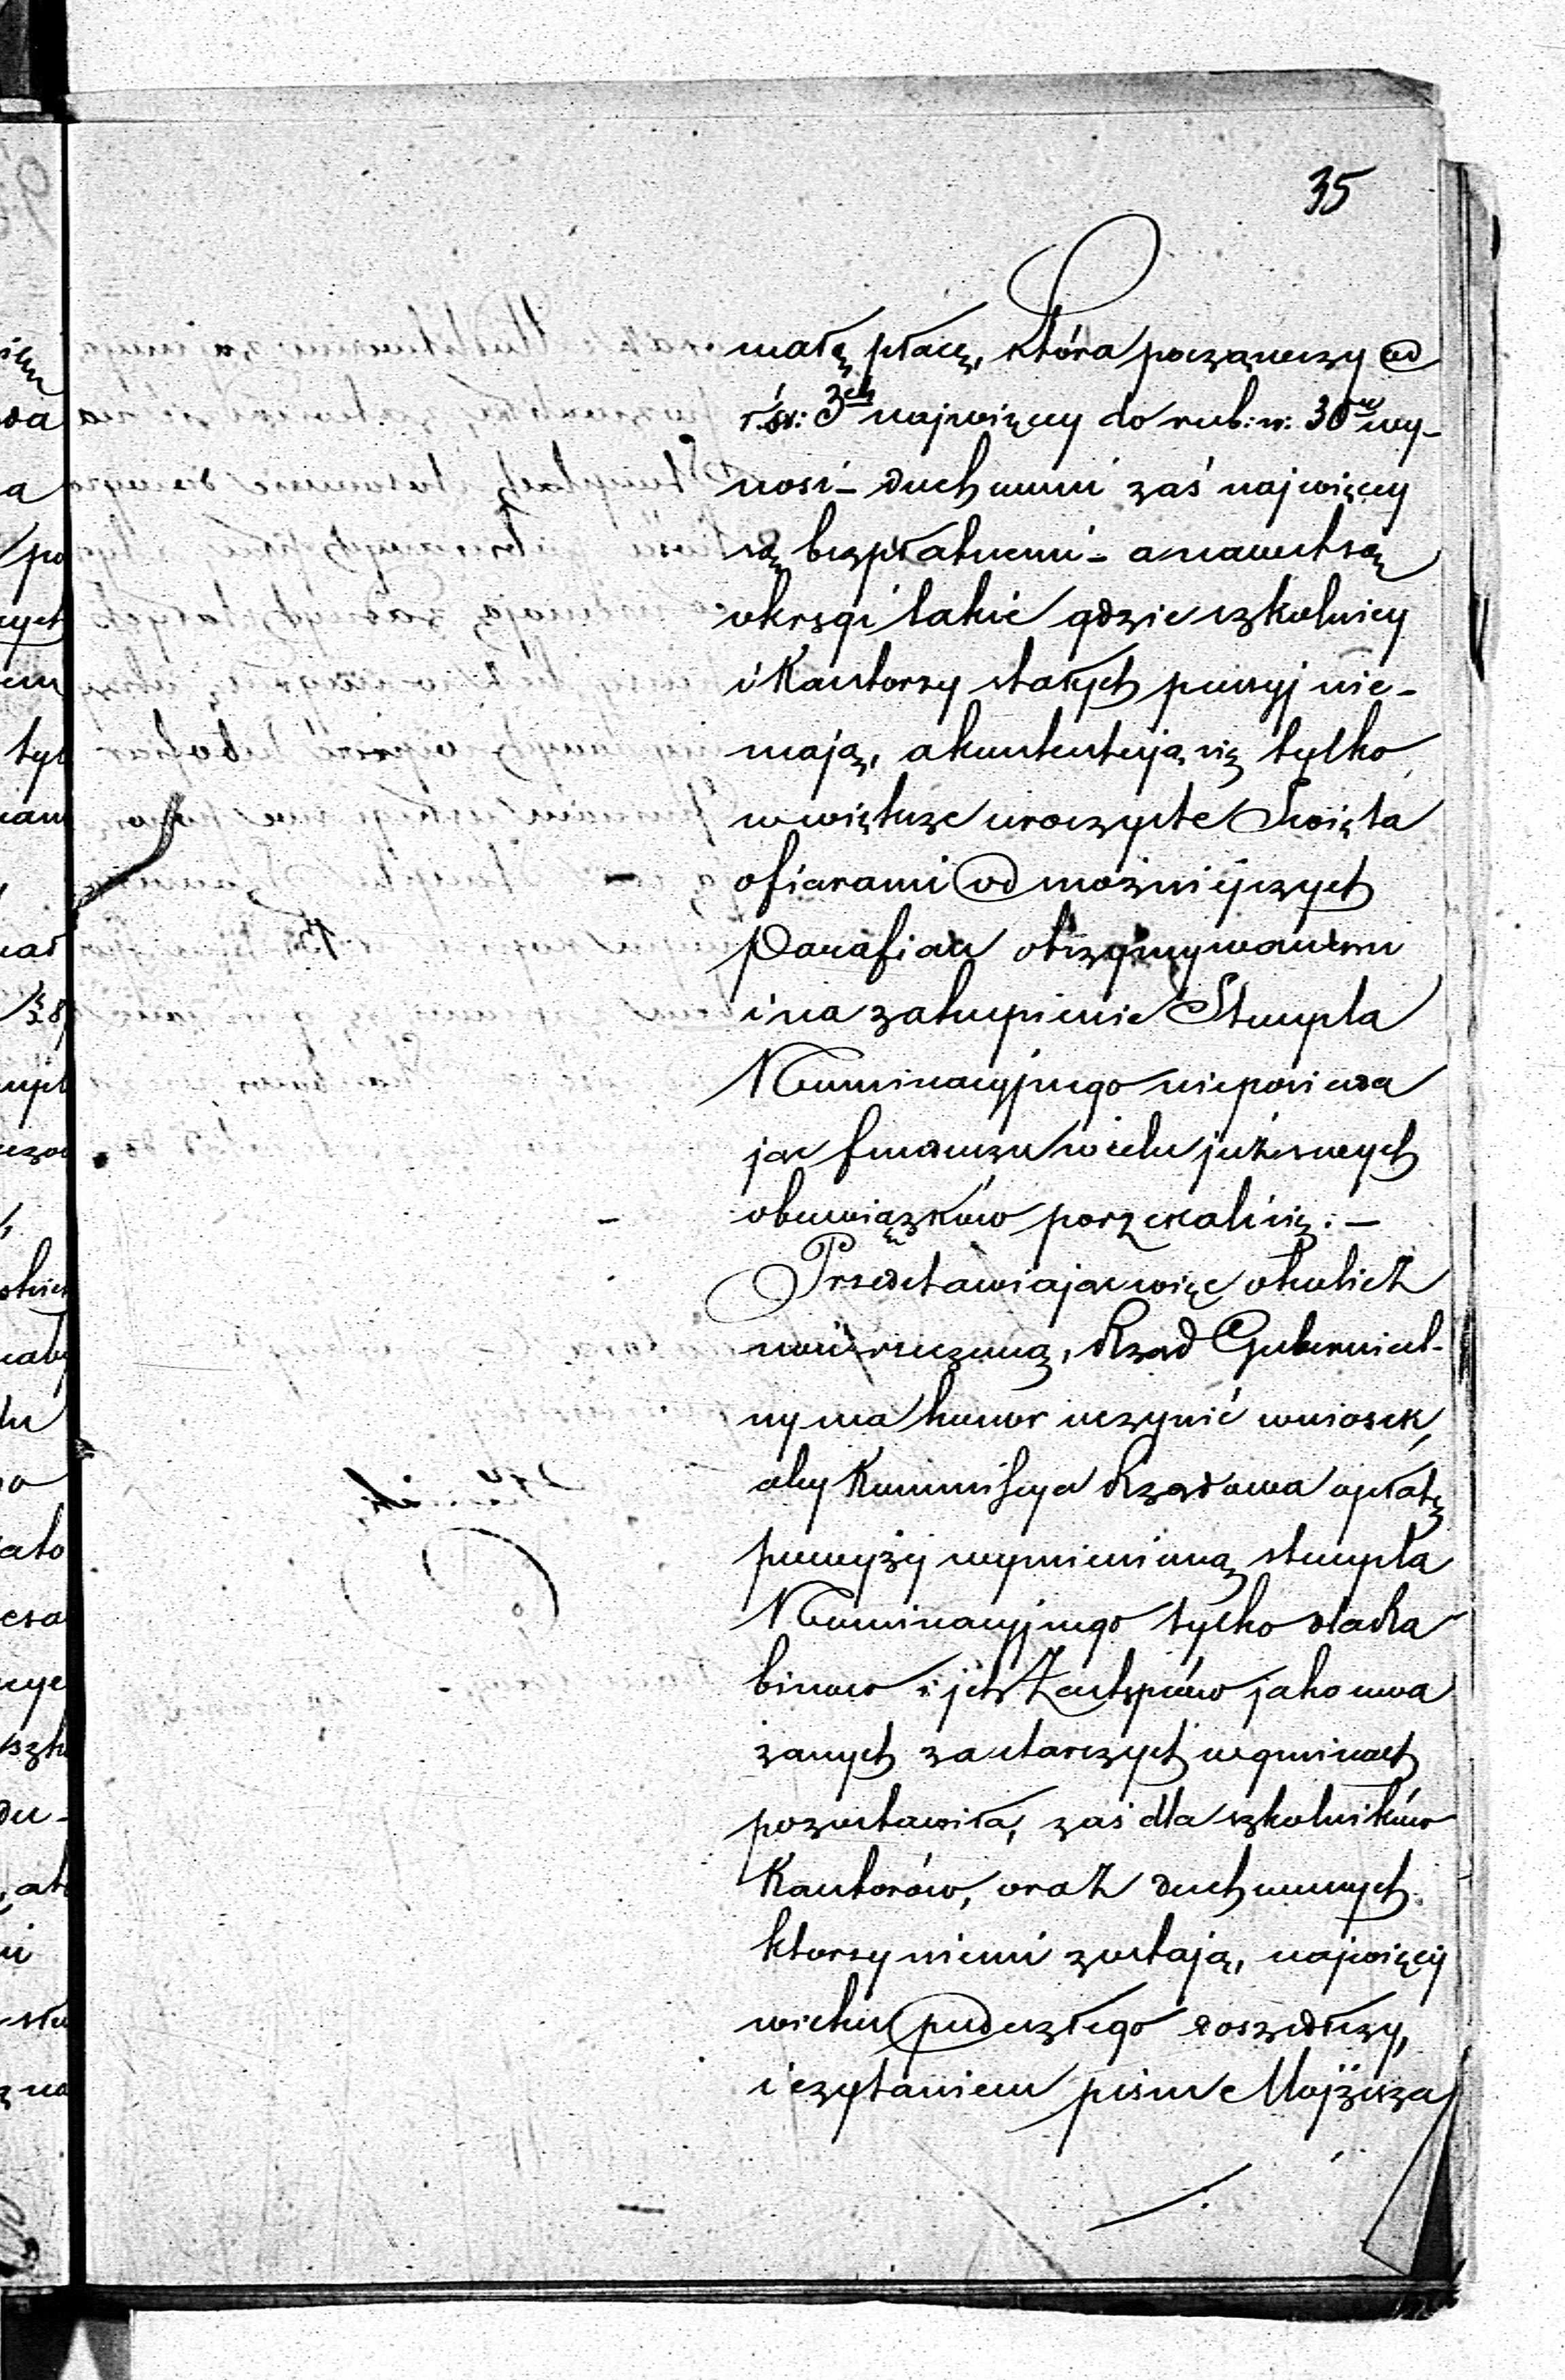 35
małą płacę, która począwszy od
r. śr: 3ch najwięcy do rub: sr: 30u wy-
nosi - duchowni zaś najwięcy
są bezpłatnemi - a nawet są
okręgi takie gdzie szkolnicy
i Kantorzy stałych pensyj nie-
mają, a kontentują się tylko
w większe uroczyste Święta
ofiarami od możniejszych
Parafian otrzymywanemi
i na zakupienie Stempla
Nominacyjnego nieposiada
jąc funduszu wielu już
obowiązków się: -
Przedstawiając więc okolicz
ność rzeczoną, Rząd Gubernial-
ny ma honor uczynić wniosek,
aby Kommissya Rządowa opłatę
powyżey wymienioną stempla
Nominacyjnego tylko dla Ra
binów i ich Zastępców jako uwa
żanych za starszych w gminach
pozostawiła, zaś dla szkolników
Kantorów, oraz duchownych
ktorzy niemi zostają, najwięcej
wieku podeszłego doszedłszy,
i czytaniem pism Mojżesza